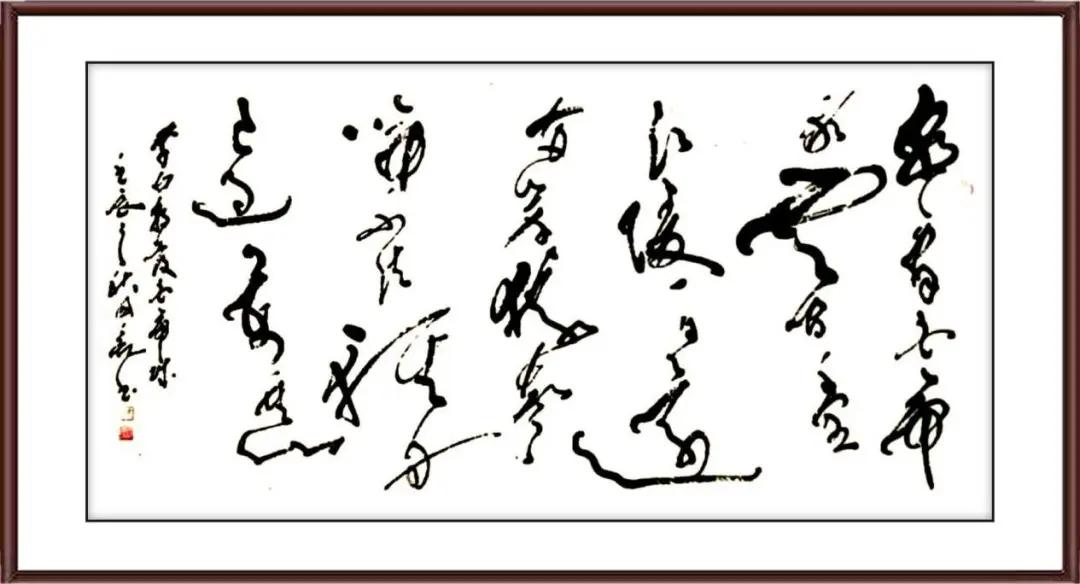 朝辞白帝
彩云间千里
江陵一日还
两岸猿声
啼不住轻舟
已过万重山
李白早发白帝城
之秋月书